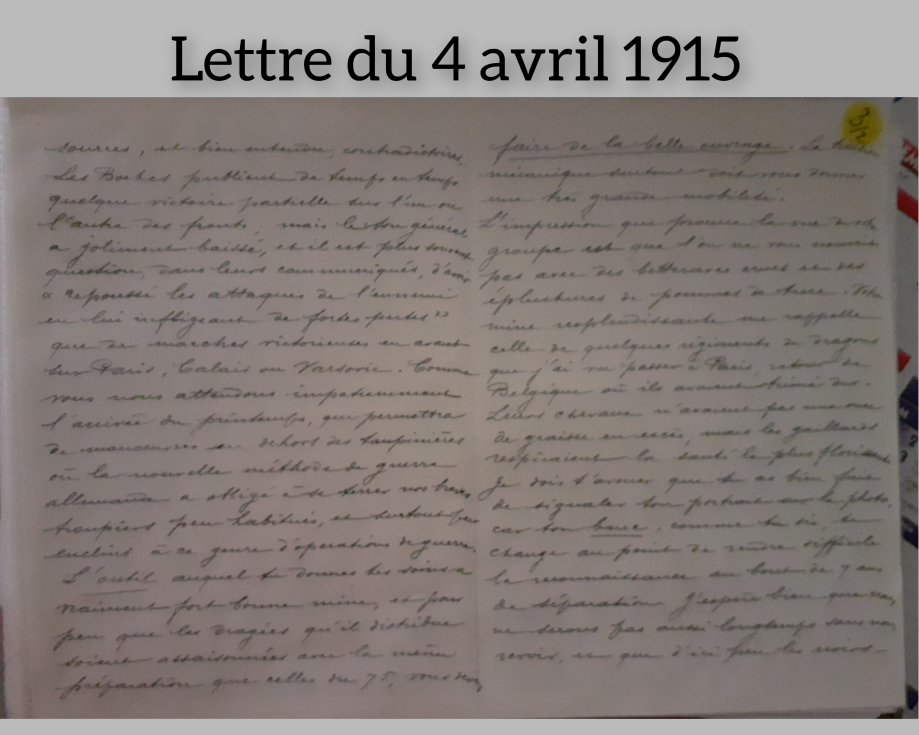 Lettre du 4 avril 1915
3/2
sources, et bien entendu, contradictoires.
Les Boches publient de temps en temps
quelque victoire partielle sur l'un ou
l'autre des fronts, mais le ton général
a joliment baissé, et il est plus souvent
question, dans leurs communiqués, d'avoir
"repoussé les attaques de l'ennemi
en lui infligeant de fortes pertes"
que de marches victorieuses en avant
sur Paris, Calais ou Varsovie. Comme
vous nous attendons impatiemment
l'arrivée du printemps, qui permettra
de manœuvres en dehors des taupinières
où la nouvelle méthode de guerre
allemande a obligé à se terrer nos braves
troupiers peu habitués, et surtout peu
enclins à ce genre d'opérations de guerre.
L'outil auquel tu donnes tes soins a
vraiment fort bonne mine, et pour
peu que les dragées qu'il distribue
soient assaisonnées avec la même
préparation que celles du 75, vous devez
faire de la belle ouvrage. La
mécanique surtout doit vous donner
une très grande mobilité.
L'impression que procure la vue de
groupe est que l'on ne vous nourrit
pas avec des betteraves crues et des
épluchures de pommes de terre. Votre
mine resplendissante me rappelle
celle de quelques régiments de dragons
que j'ai vu passer à Paris, retour de
Belgique où ils avaient trimé dur.
Leurs chevaux n'avaient pas une once
de graisse en excès, mais les gaillards
respiraient la santé la plus florissante.
Je dois t'avouer que tu as bien fait
de signaler ton portrait sur la photo,
car ton bouc, comme tu dis, te
change au point de rendre difficile
la reconnaissance au bout de 7 ans
de séparation. J'espère bien que nous
ne serons pas aussi longtemps sans nous
revoir, et que d'ici peu les